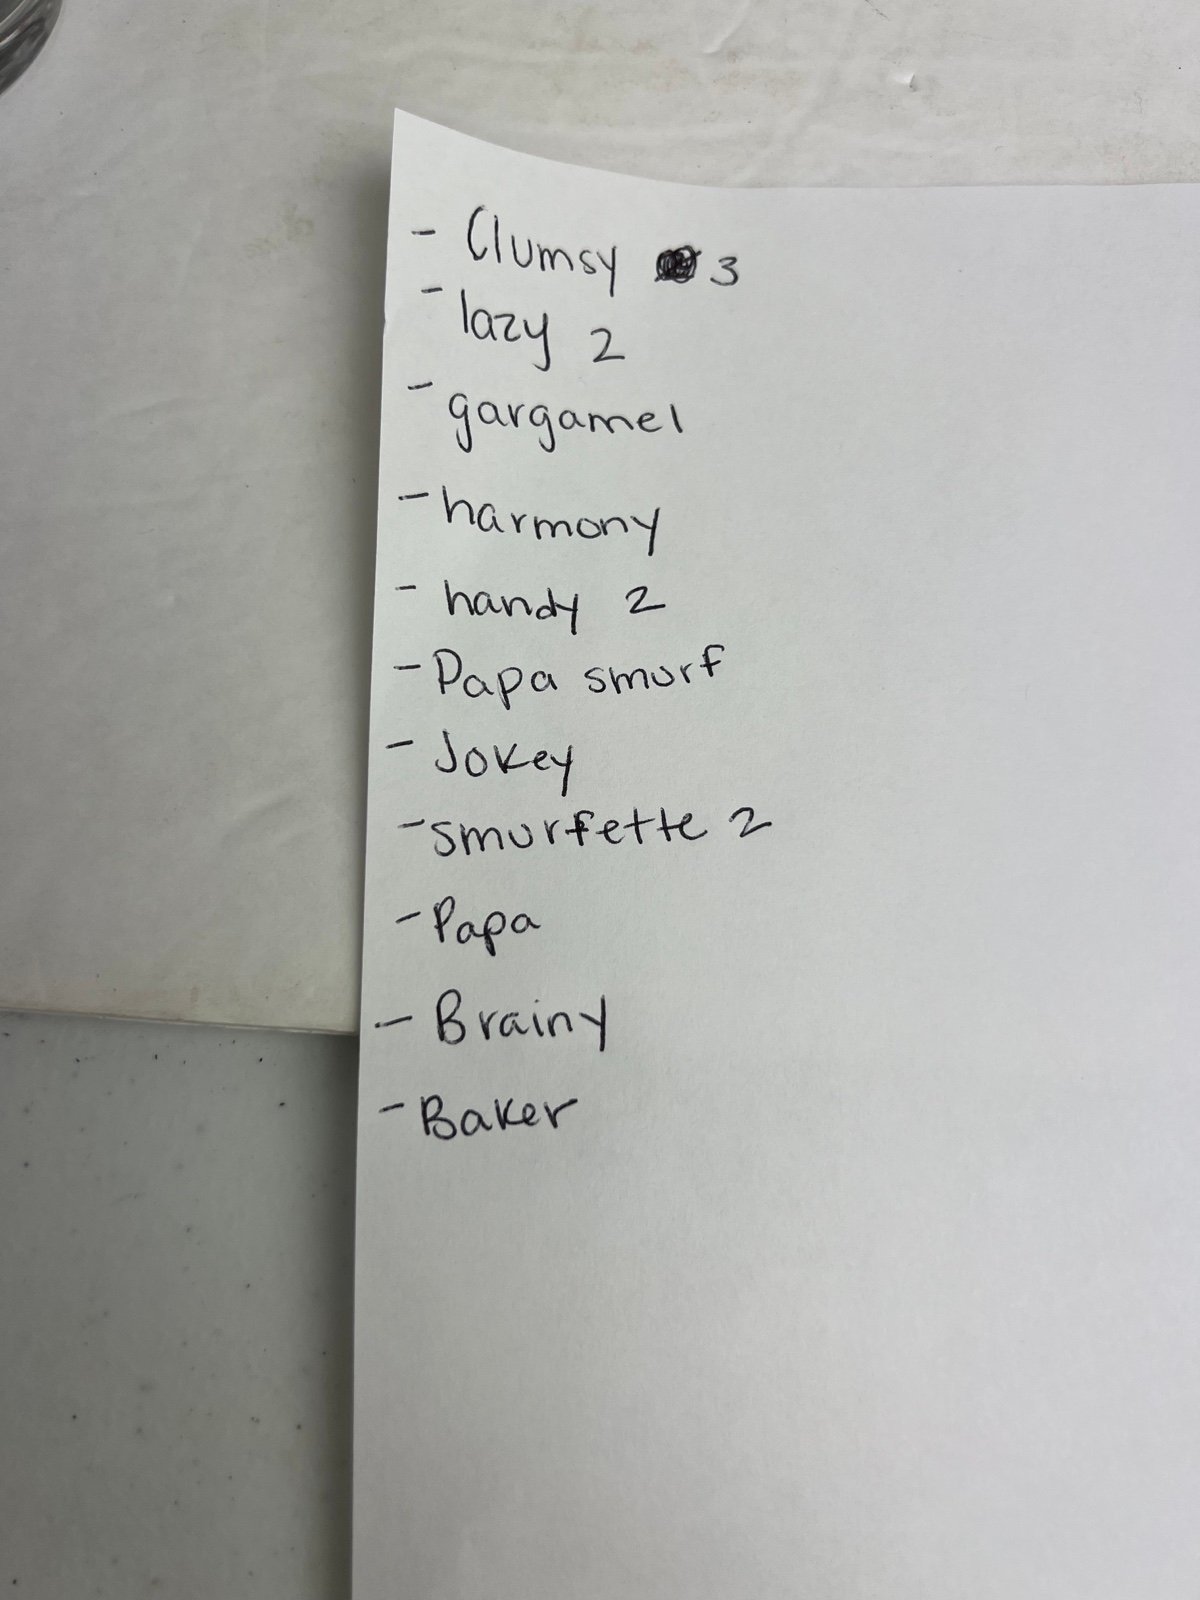 - Clumsy 3
- lazy 2
- gargamel
- harmony
- handy 2
- Papa smurf
- Jokey
- smurfette 2
- Papa
- Brainy
- Baker